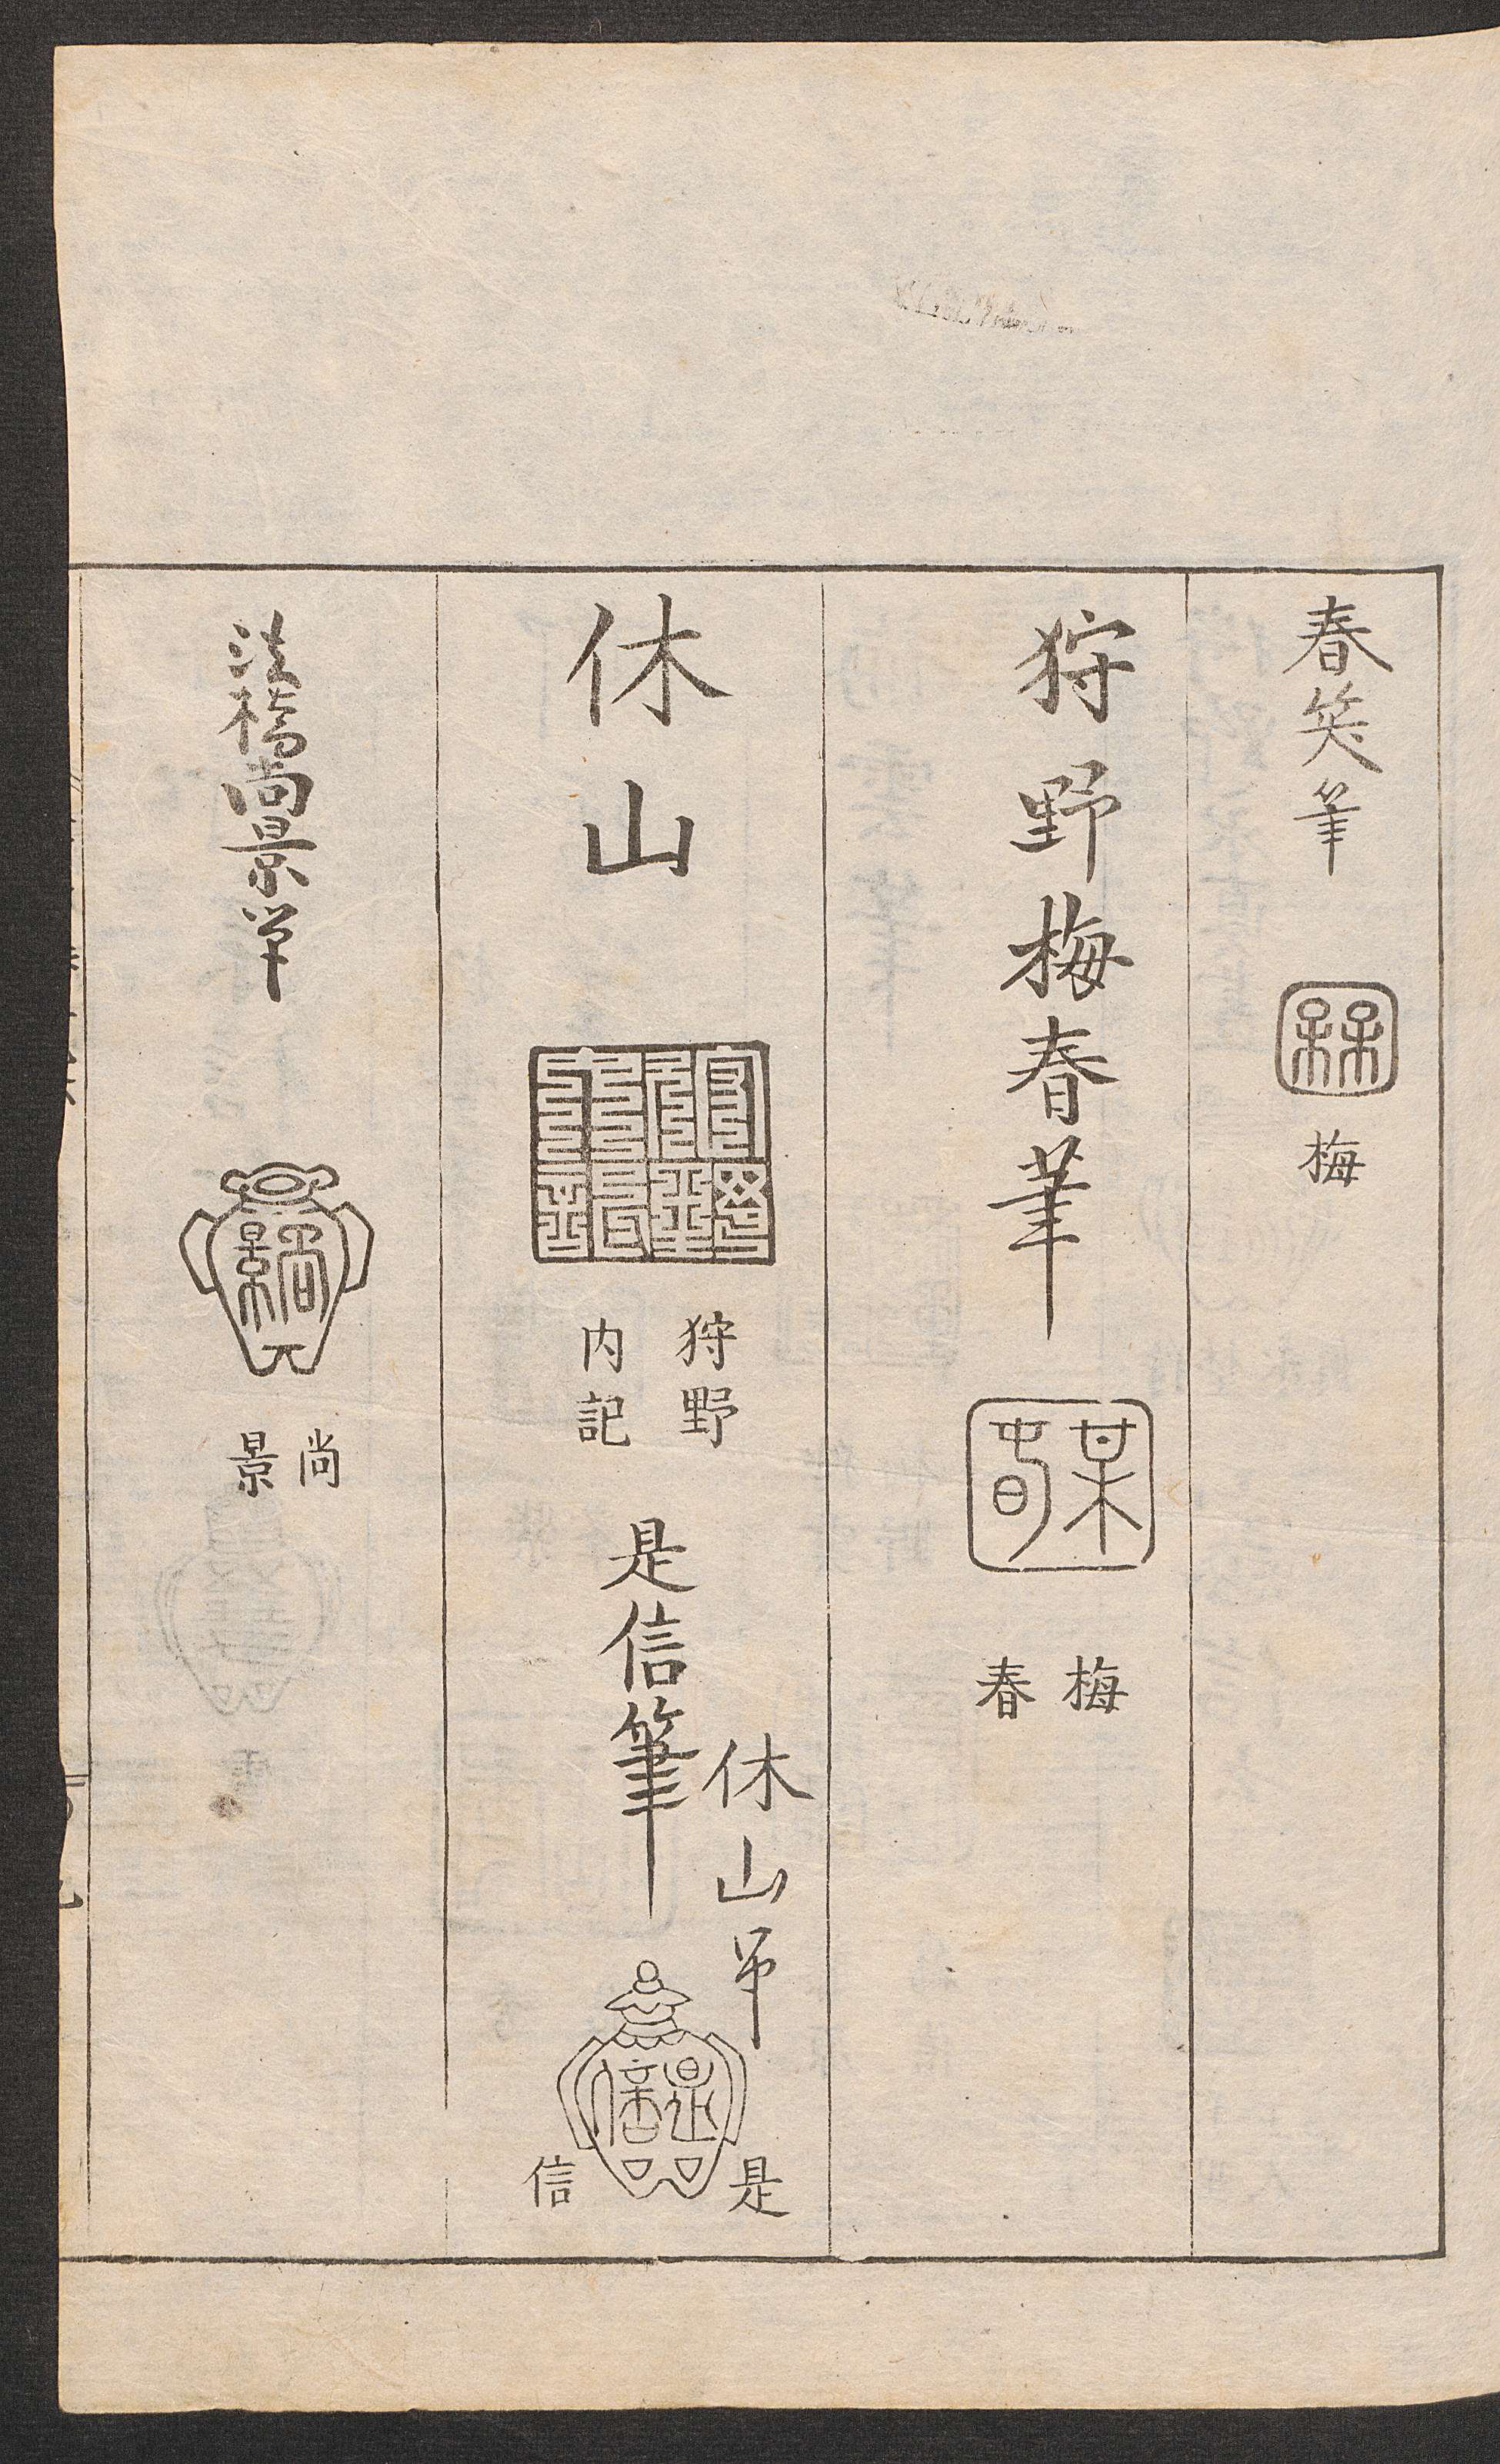 春笑筆
梅
狩野梅春筆
某春
梅
春
休山
狩野
内記
休山筆
是信筆
是信
是
信
法橋尚景筆
尚景
尚
景